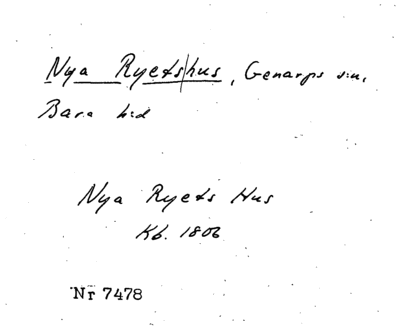 Nya Ryets|hus, Genarps sn,
Bara hd
Nya Ryets Hus
Kb. 1806
Nr 7478